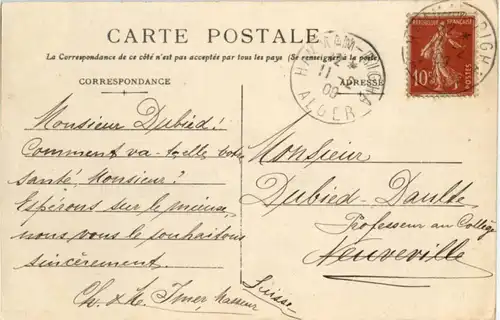 CARTE POSTALE
La Correspondance de ce côté n'est pas acceptée par tous les pays (Se renseigner à la poste)
CORRESPONDANCE
ADRESSE
HAMMAM-RIGHA
12 *
11 -2
09
ALGER
RÉPUBLIQUE FRANÇAISE
10c
POSTES
Monsieur Dubied!
Comment va-t-elle votre
santé, Monsieur?
Espérons sur le mieux,
nous vous le souhaitons
sincèrement
Ch. & M. Imer, Masseur
Monsieur
Dubied-Daulte
Professeur au Collège
Neuveville
Suisse